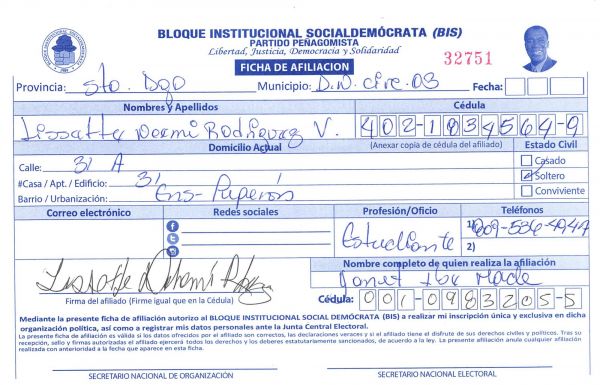 BLOQUE INSTITUCIONAL SOCIALDEMÓCRATA (BIS)
PARTIDO PEÑAGOMISTA
Libertad, Justicia, Democracia y Solidaridad
FICHA DE AFILIACION
32751
Provincia: Sto. Dgo Municipio: D.N. circ. 03 Fecha:
Nombres y Apellidos Cédula
Lissette Rodríguez V. 402-1834564-9
Domicilio Actual (Anexar copia de cédula del afiliado) Estado Civil
Calle: 31 A Casado
#Casa / Apt. / Edificio: 31 Soltero
Barrio / Urbanización: Ens- Conviviente
Correo electrónico Redes sociales Profesión/Oficio Teléfonos
Estudiante 1) 809-536-4944
2)
Nombre completo de quien realiza la afiliación
Firma del afiliado (Firme igual que en la Cédula) Cédula: 001-0983205-5
Mediante la presente ficha de afiliación autorizo al BLOQUE INSTITUCIONAL SOCIAL DEMÓCRATA (BIS) a realizar mi inscripción única y exclusiva en dicha
organización política, así como a registrar mis datos personales ante la Junta Central Electoral.
La presente ficha de afiliación es válida si los datos ofrecidos por el afiliado son correctos, las declaraciones veraces y si el afiliado tiene el disfrute de sus derechos civiles y políticos. Tras su
recepción, sello y firmas autorizadas el afiliado ejercerá todos los derechos y los deberes estatutariamente sancionados, de acuerdo a la ley. La presente afiliación anula cualquier afiliación
realizada con anterioridad a la fecha que aparece en esta ficha.
SECRETARIO NACIONAL DE ORGANIZACIÓN SECRETARIO NACIONAL ELECTORAL